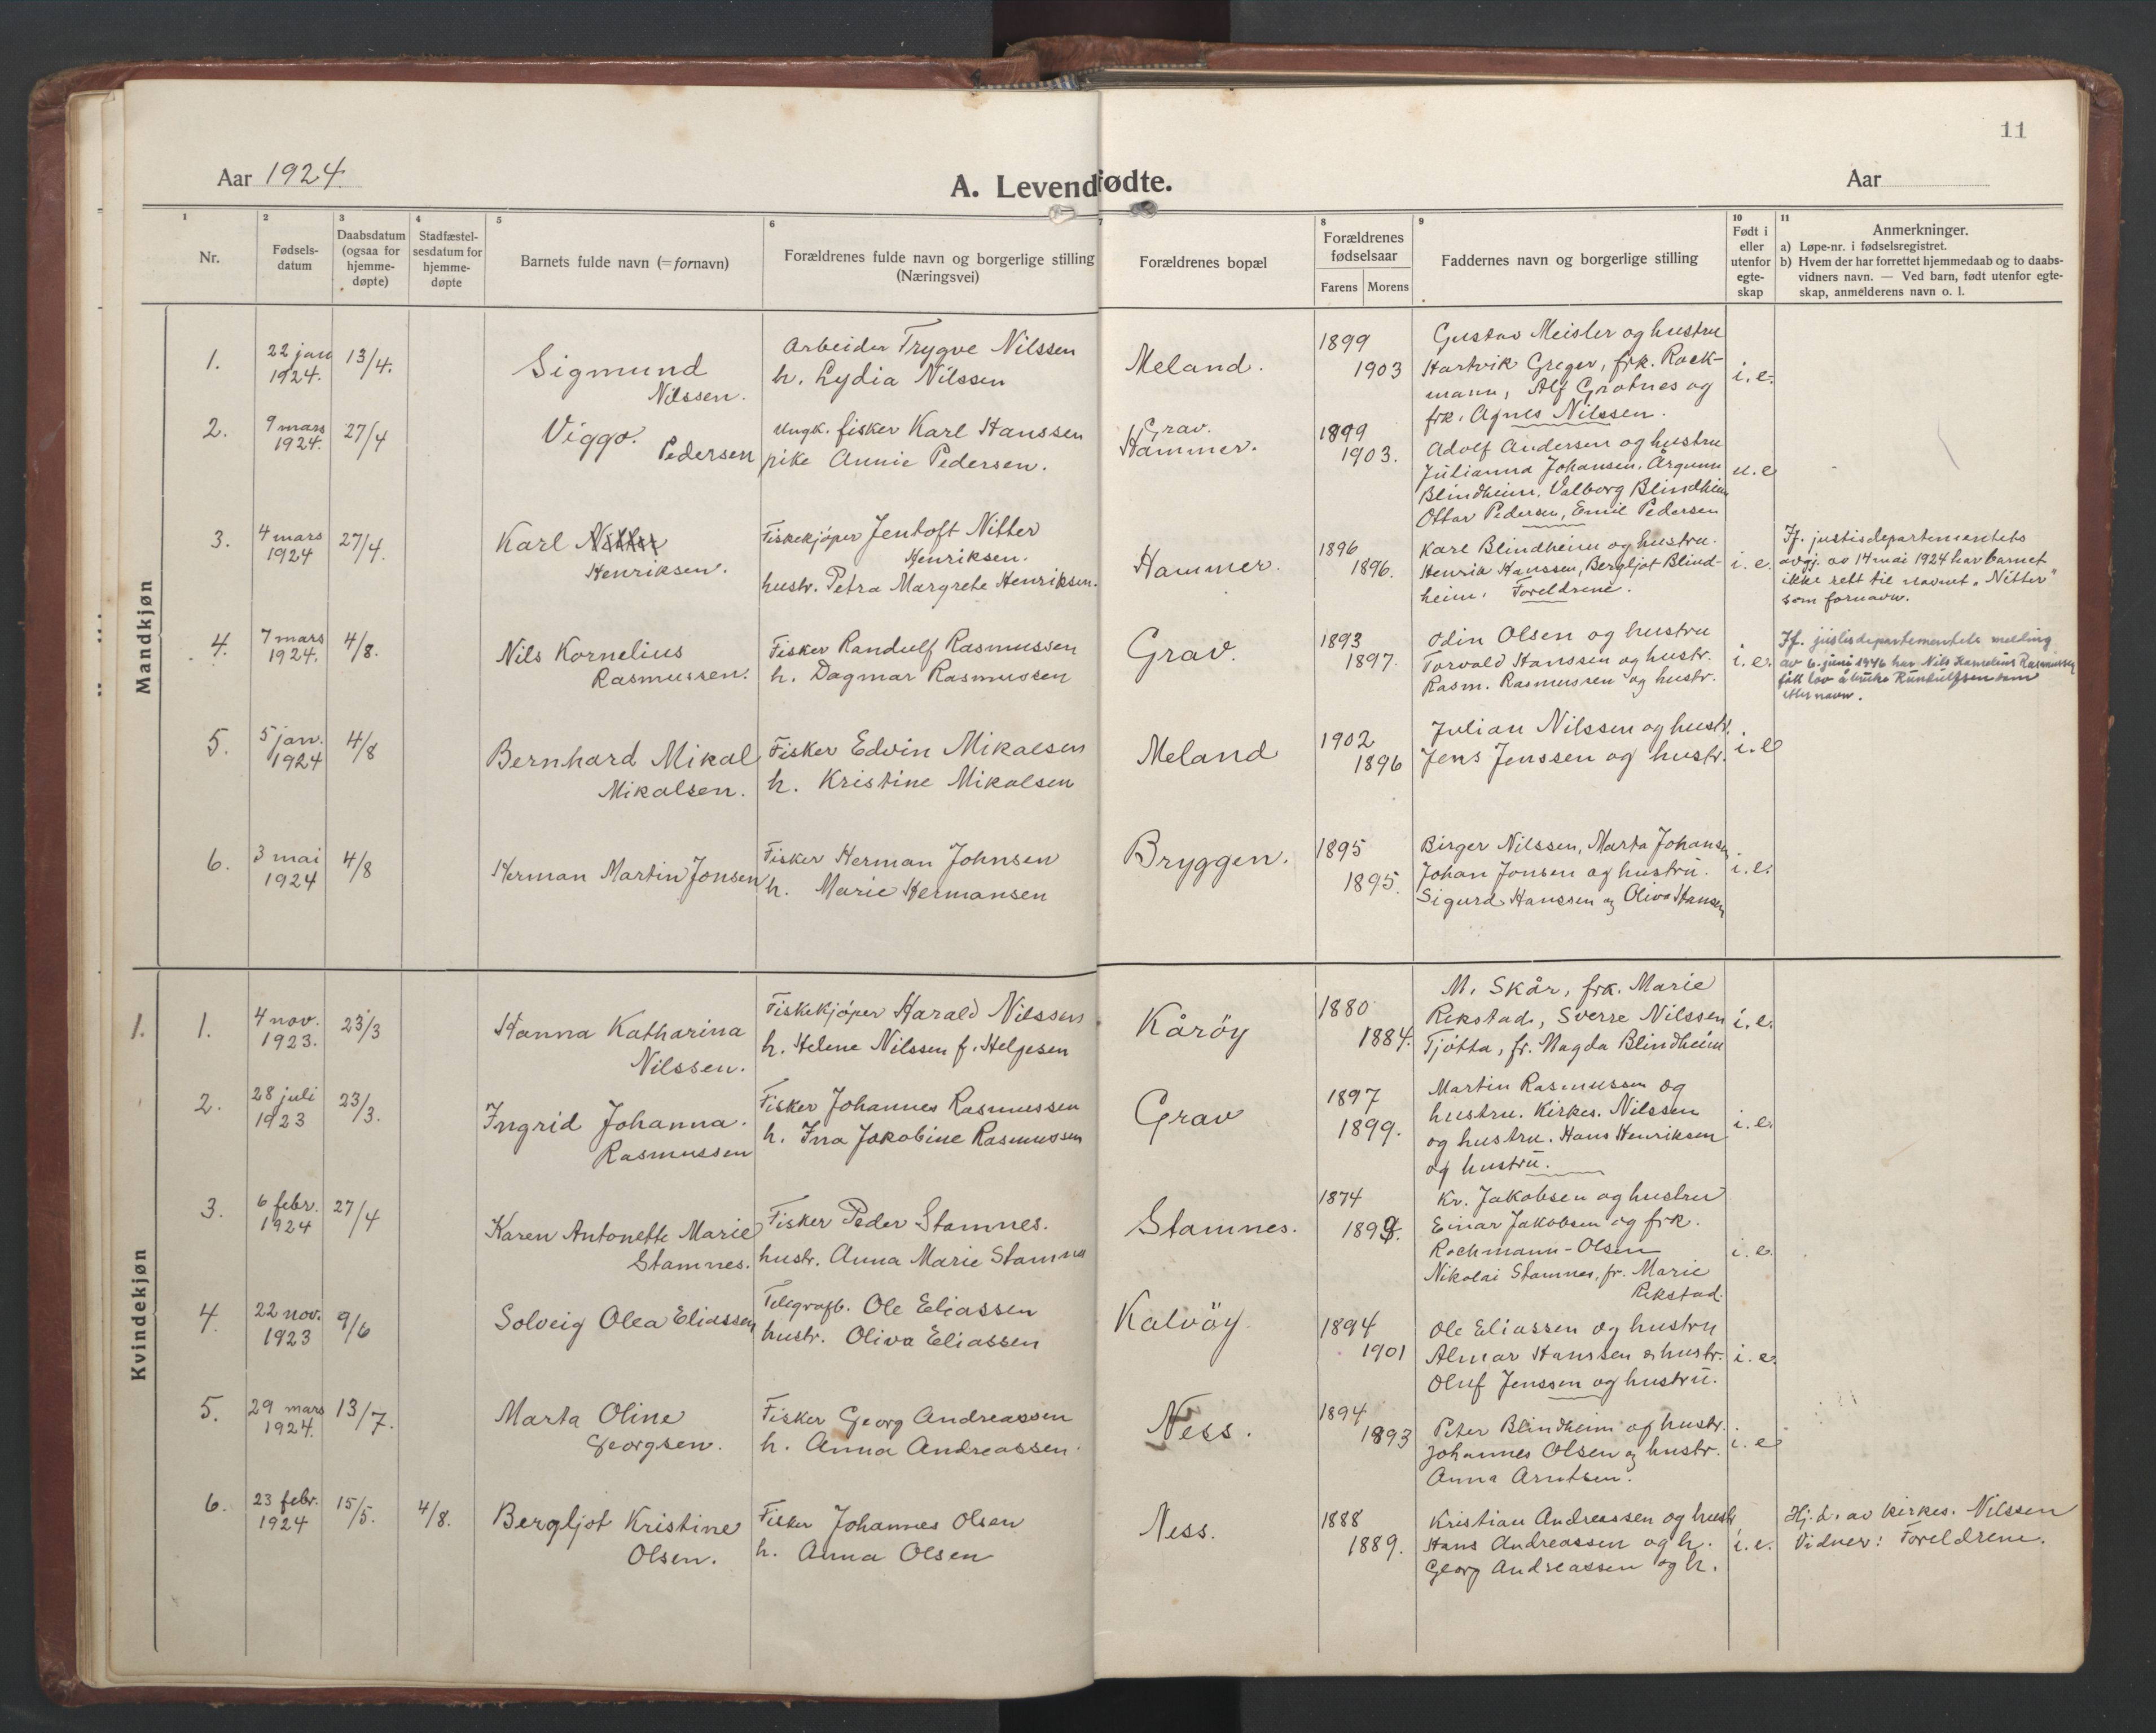 11
Aar 1924
A. Levendfødte.
Aar
1 2 3 4 5 6 7 8 9 10 11
Nr.
Fødsels-
datum
Daabsdatum
(ogsaa for
hjemme-
døpte)
Stadfæstel-
sesdatum for
hjemme-
døpte
Barnets fulde navn (=fornavn)
Forældrenes fulde navn og borgerlige stilling
(Næringsvei)
Forældrenes bopæl
Forældrenes
fødselsaar
Farens Morens
Faddernes navn og borgerlige stilling
Født i
eller
utenfor
egte-
skap
Anmerkninger.
a) Løpe-nr. i fødselsregistret.
b) Hvem der har forrettet hjemmedaab og to daabs-
vidners navn. — Ved barn, født utenfor egte-
skap, anmelderens navn o. l.
Mandkjøn
1.
22 jan
1924.
13/4.
Sigmund
Nilssen.
Arbeider Trygve Nilssen
h. Lydia Nilssen
Meland.
1899
1903
Gustav Meisler og hustru
Hartvik Greger, frk. Rock-
mann, Alf Grotnes og
frk. Agnes Nilssen.
i. e.
2.
9 mars
1924.
27/4
Viggo.
Pedersen
Ungk. fisker Karl Hanssen
pike Annie Pedersen.
Grav.
Hammer.
1899
1903.
Adolf Andersen og hustru
Julianna Johansen, Årgunn
Blindheim, Valborg Blindheim
Ottar Pedersen, Emil Pedersen
u. e
3.
4 mars
1924
27/4.
Karl Nitter
Henriksen.
Fiskekjøper Jentoft Nitter
Henriksen.
hustr. Petra Margrete Henriksen.
Hammer.
1896
1896.
Karl Blindheim og hustru.
Henrik Hanssen, Bergljot Blind-
heim. Foreldrene.
i. e.
Jf. justisdepartementets
avgj. av 14 mai 1924 har barnet
ikke rett til navnet „Nitter"
som fornavn.
4.
7 mars
1924.
4/8.
Nils Kornelius
Rasmussen.
Fisker Randulf Rasmussen
h. Dagmar Rasmussen
Grav.
1893
1897.
Odin Olsen og hustru
Torvald Hanssen og hustr.
Rasm. Rasmussen og hustr.
i. e.
Jf. justisdepartementets melding
av 6. juni 1946 har Nils Kornelius Rasmussen
fått lov å bruke Randulfsen som
etternavn.
5.
5 jan.
1924
4/8
Bernhard Mikal
Mikalsen.
Fisker Edvin Mikalsen
h. Kristine Mikalsen
Meland
1902
1896
Julian Nilssen og hustr.
Jens Jenssen og hustr.
i. e
6.
3 mai
1924
4/8
Herman Martin Jonsen
Fisker Herman Johnsen
h. Marie Hermansen
Bryggen.
1895
1895.
Birger Nilssen, Marta Johansen
Johan Jonsen og hustru.
Sigurd Hanssen og Oliva Hansen
i. e.
Kvindekjøn
1.
1.
4 nov.
1923.
23/3
Hanna Katharina
Nilssen.
Fiskekjøper Harald Nilssen
h. Helene Nilssen f. Helgesen
Kårøy
1880
1884.
M. Skår, frk. Marie
Rekstad, Sverre Nilssen
Tjötta, fr. Magda Blindheim
i. e.
2.
28 juli
1923
23/3.
Ingrid Johanna.
Rasmussen
Fisker Johannes Rasmussen
h. Ina Jakobine Rasmussen
Grav
1897
1899.
Martin Rasmussen og
hustru. Kirkes. Nilssen
og hustru. Hans Henriksen
og hustru.
i. e.
3.
6 febr.
1924
27/4
Karen Antonette Marie
Stamnes.
Fisker Peder Stamnes.
hustr. Anna Marie Stamnes
Stamnes.
1874
1899.
Kr. Jakobsen og hustru
Einar Jakobsen og frk.
Rochmann-Olsen
Nikolai Stamnes, fr. Marie
Rekstad.
i. e.
4.
22 nov.
1923
9/6
Solveig Olea Eliassen
Telegrafb. Ole Eliassen
hustr. Oliva Eliassen
Kalvöy.
1894
1901
Ole Eliassen og hustru
Almar Hanssen og hustr.
Oluf Jenssen og hustru.
i. e.
5.
29 mars
1924.
13/7.
Marta Oline
Georgsen.
Fisker Georg Andreassen
h. Anna Andreassen.
Ness.
1894
1893
Peter Blindheim og hustr.
Johannes Olsen og hustr.
Anna Arntsen.
i. e
6.
23 febr.
1924
15/5.
4/8.
Bergljot Kristine
Olsen.
Fisker Johannes Olsen
h. Anna Olsen
Ness.
1888
1889.
Kristian Andreassen og hustr,
Hans Andreassen og h.
Georg Andreassen og h.
i. e.
Hj. d. av kirkes. Nilssen
Vidner: Foreldrene.